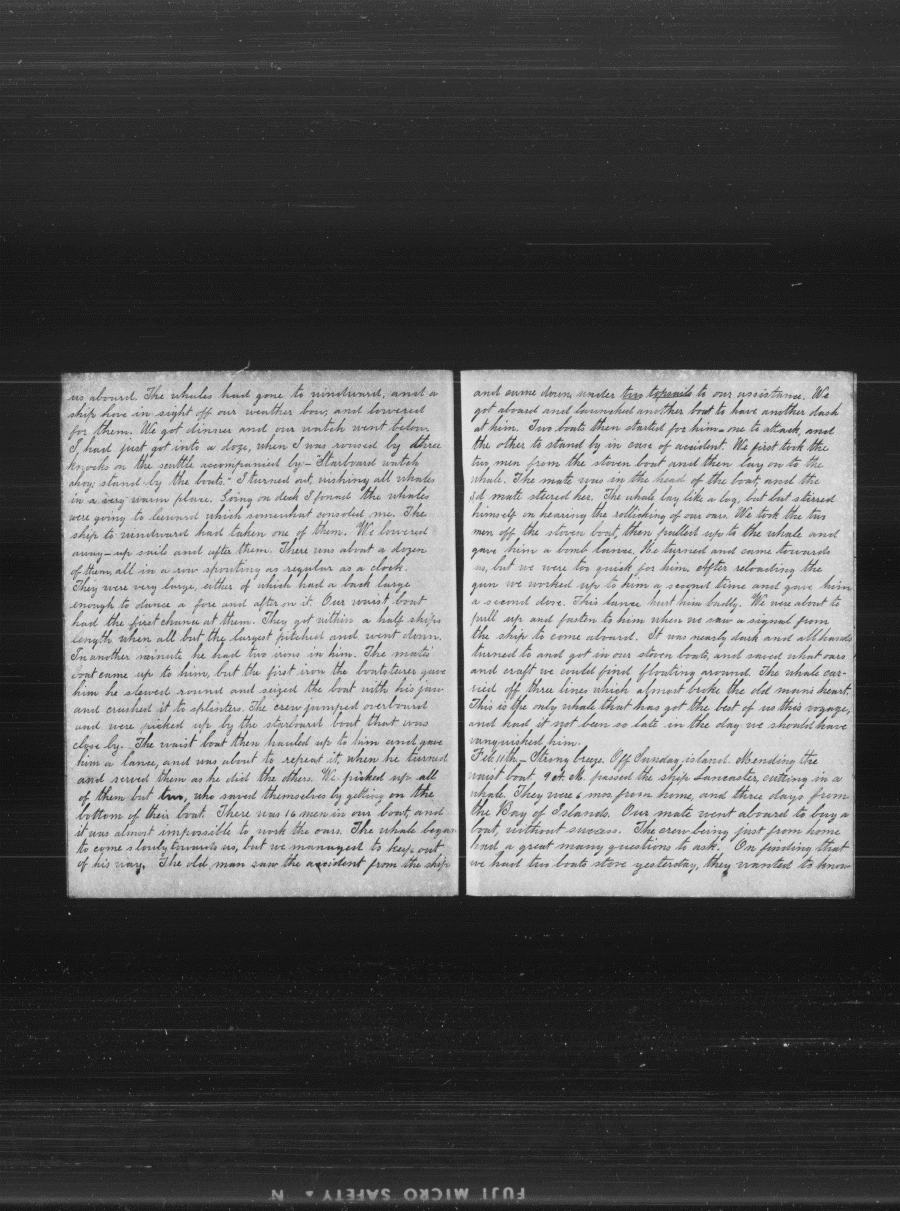 us aboard. The whales had gone to windward, and a
ship hove in sight off our weather bow, and lowered
for them. We got dinner and our watch went below.
I, had just got into a doze, when I was roused by three
knocks on the scuttle accompanied by – "Starboard watch
ahoy; stand by the boats." I turned out, wishing all whales
in a very warm place. Going on deck I found the whales
were going to leeward which somewhat consoled me. The
ship to windward had taken one of them. We lowered
away – up sails and after them. There was about a dozen
of them, all in a row spouting as regular as a clock.
They were very large, either of which had a back large
enough to dance a fore and after on it. Our waist boat
had the first chance at them. They got within a half ship's
length when all but the largest pitched and went down.
In another minute he had two irons in him. The mate's
boat came up to him, but the first iron the boatsterer gave
him he slewed round and seized the boat with his jaw
and crushed it to splinters. The crew jumped overboard
and were picked up by the starboard boat that was
close by. The waist boat then hauled up to him and gave
him a lance, and was about to repeat it, when he turned
and served them as he did the others. We picked up all
of them but two, who saved themselves by getting on the
bottom of their boat. There was 16 men in our boat, and
it was almost impossible to work the oars. The whale began
to come slowly towards us, but we managed to keep out
of his way. The old man saw the accident from the ship
and came down under two topsails to our assistance. We
got aboard and launched another boat to have another dash
at him. Two boats then started for him – one to attack, and
the other to stand by in case of accident. We first took the
two men from the stoven boat and then lay on to the
whale. The mate was in the head of the boat, and the
3d mate steered her. The whale lay like a log, but but stirred
himself on hearing the rollicking of our oars. We took the two
men off the stoven boat, then pulled up to the whale and
gave him a bomb lance. He turned and came towards
us, but we were too quick for him. After reloading the
gun we worked up to him a second time and gave him
a second dose. This lance hurt him badly. We were about to
pull up and fasten to him when we saw a signal from
the ship to come aboard. It was nearly dark and all hands
turned to and got in our stoven boats, and saved what oars
and craft we could find floating around. The whale car-
ried off three lines which almost broke the old man's heart.
This is the only whale that has got the best of us this voyage,
and had it not been so late in the day we should have
vanquished him.
Feb 11th – Strong breeze. Off Sunday island. Mending the
waist boat. 9 A.M. passed the ship Lancaster, cutting in a
whale. They were 6 mos from home, and three days from
the Bay of Islands. Our mate went aboard to buy a
boat, without success. The crew being just from home
had a great many questions to ask. On finding that
we had two boats stove yesterday, they wanted to know
FUJI MICRO SAFETY ▲ N